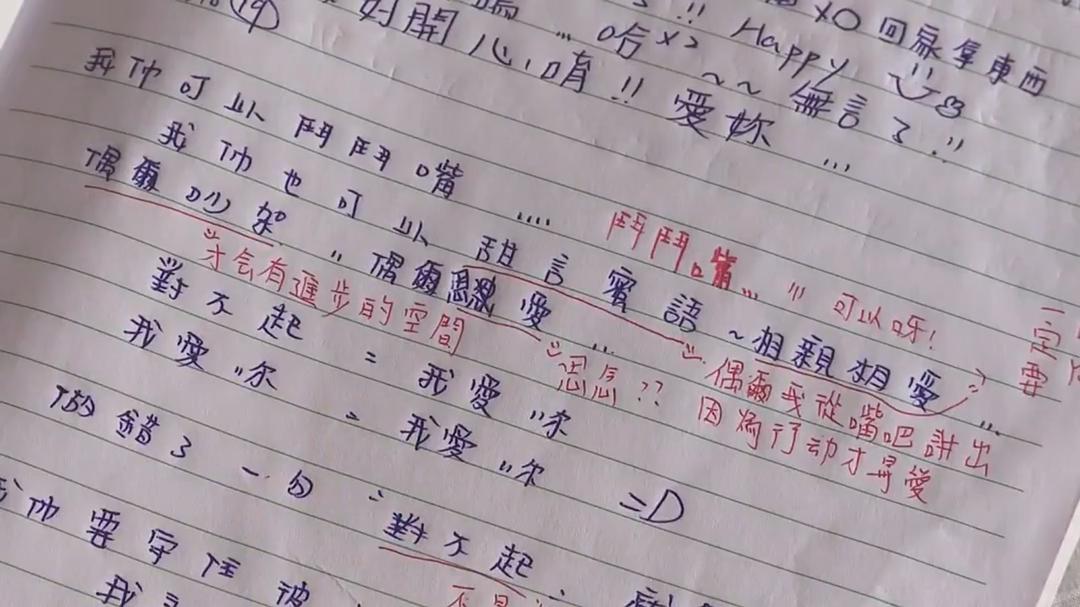 XO 回家拿東西
好開心唷!! 哈x2 Happy
~~ 無言了!!
愛妳...
我们可以鬥鬥嘴....
鬥鬥嘴... 可以呀!
我们也可以甜言蜜語~相親相愛...
偶爾吵架 偶爾 愛...
才会有進步的空間
偶爾我從嘴吧講出
因為行动才是愛
一定要
對不起 = 我愛你
我愛你 = 我愛你 =D
做錯了 一句: 對不起
我们要守住